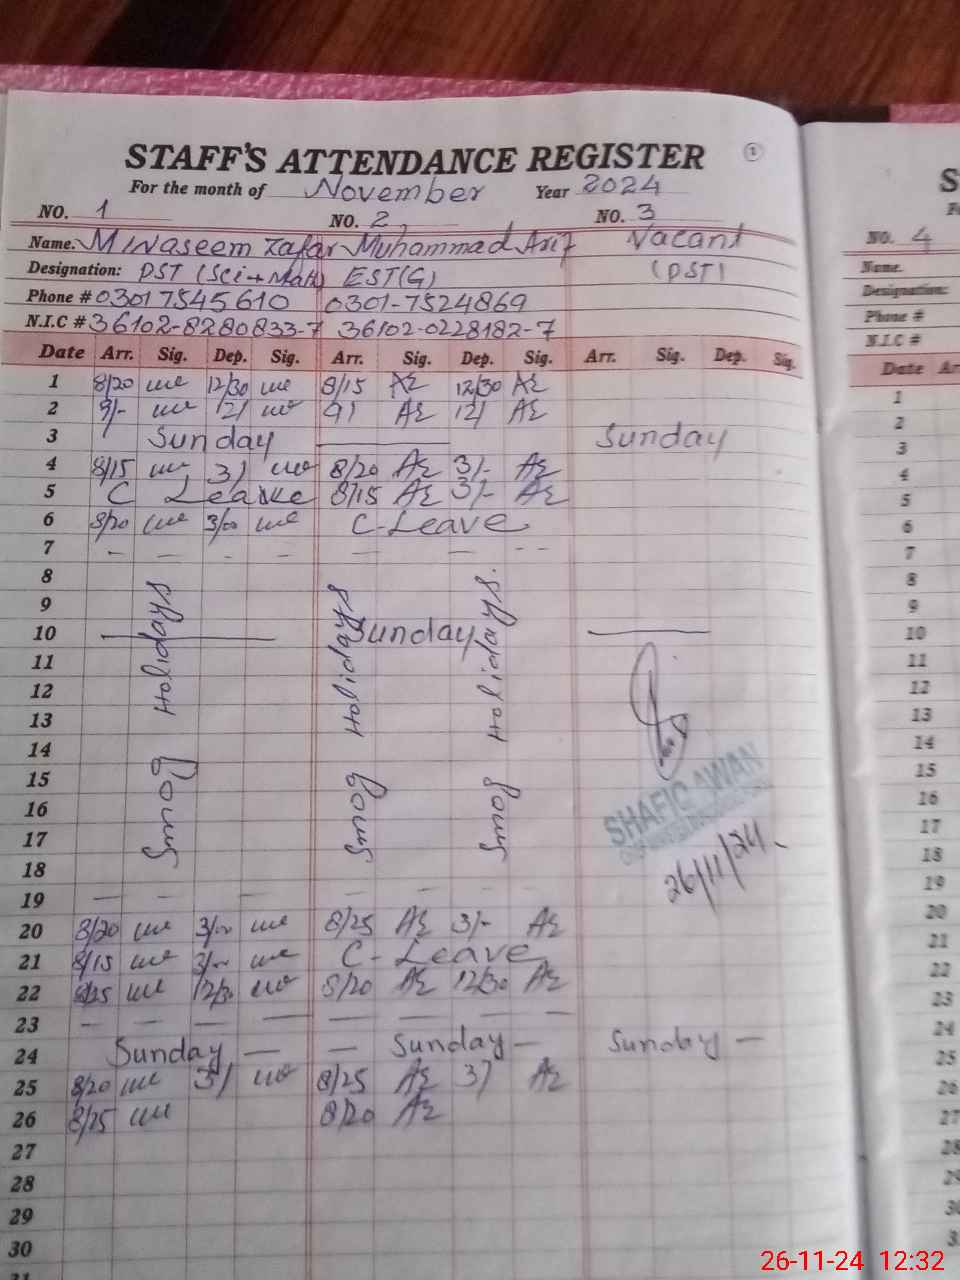 STAFF'S ATTENDANCE REGISTER 1
For the month of November Year 2024
NO. 1 NO. 2 NO. 3
Name. M Waseem Zafar Muhammad Arif Vacant
Designation: PST (Sci+Math) EST(G) (PST)
Phone # 03017545610 0301-7524869
N.I.C # 36102-8280833-7 36102-0228182-7
Date Arr. Sig. Dep. Sig. Arr. Sig. Dep. Sig. Arr. Sig. Dep. Sig.
1 8/20 12/30 8/15 12/30
2 9/- 12/ 9/ 12/
3 Sunday Sunday
4 8/15 3/ 8/20 3/-
5 C Leave 8/15 3/-
6 8/20 3/00 C-Leave
7 - - - - - - - -
8
9
10 Sunday
11
12
13
14
15
16
17
18
19 - - - - - -
Smog Holidays
Smog Holidays
Smog Holidays.
SHAFIQ AWAN
26/11/24.
20 8/20 3/00 8/25 3/-
21 8/15 3/00 C-Leave
22 8/25 12/30 8/20 12/30
23 - - - - - - - -
24 Sunday - - Sunday - Sunday -
25 8/20 3/ 8/25 3/
26 8/25 8/20
27
28
29
30
31
S
NO. 4
Name.
Designation:
Phone #
N.I.C #
Date Arr
1
2
3
4
5
6
7
8
9
10
11
12
13
14
15
16
17
18
19
20
21
22
23
24
25
26
27
28
29
30
3
26-11-24 12:32